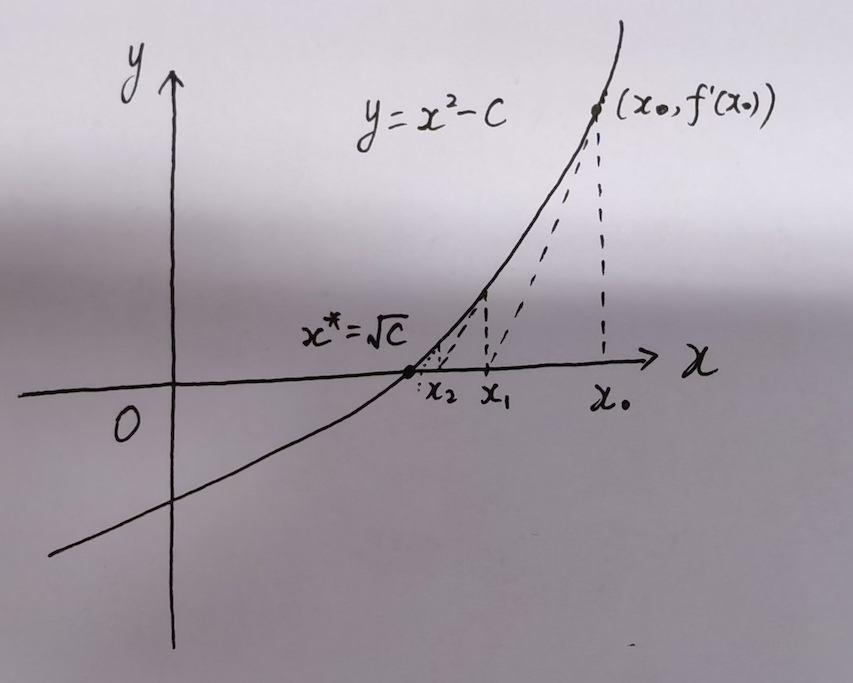 y
y = x² - C
(x₀, f'(x₀))
x* = √C
x
x₂
x₁
x₀
O